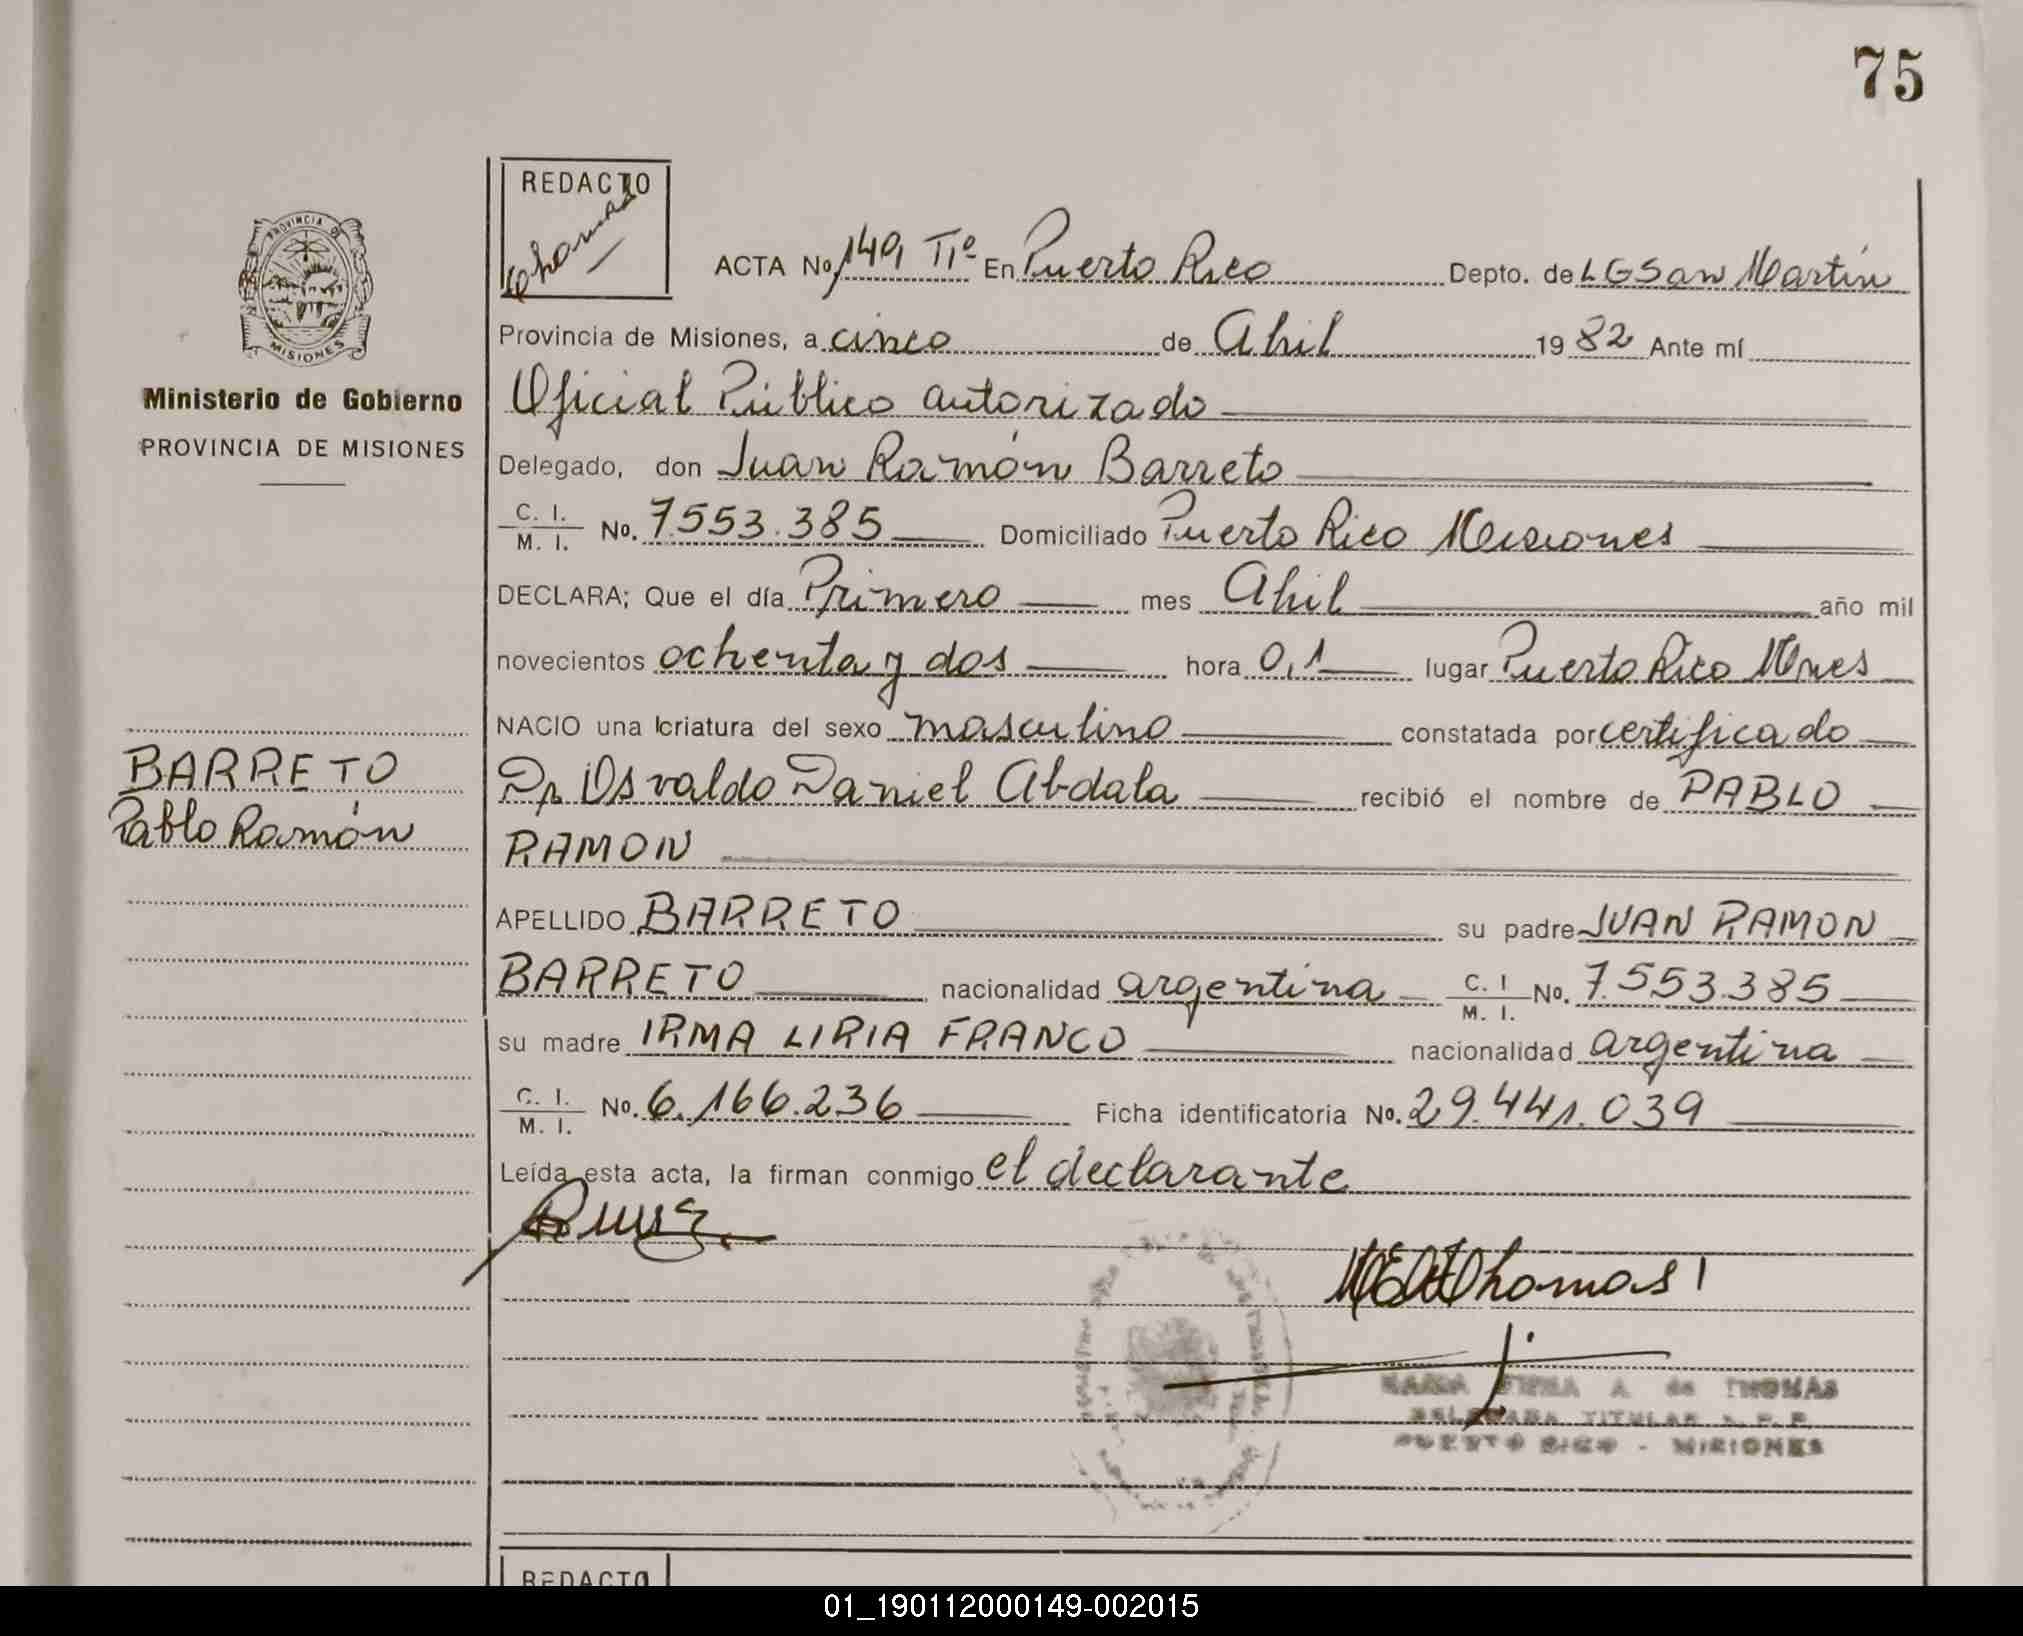 75
REDACTO
Thomas
PROVINCIA DE
MISIONES
ACTA No. 149 Tº En Puerto Rico Depto. de LGSan Martín
Provincia de Misiones, a cinco de Abril 1982 Ante mí
Ministerio de Gobierno
PROVINCIA DE MISIONES
Oficial Público autorizado
Delegado, don Juan Ramón Barreto
C. I. / M. I. No. 7.553.385 Domiciliado Puerto Rico Misiones
DECLARA; Que el día Primero mes Abril año mil
novecientos ochenta y dos hora 0,1 lugar Puerto Rico Mnes
NACIO una criatura del sexo masculino constatada por certificado
BARRETO
Pablo Ramón
Dr. Osvaldo Daniel Abdala recibió el nombre de PABLO
RAMON
APELLIDO BARRETO su padre JUAN RAMON
BARRETO nacionalidad argentina C. I / M. I. No. 7.553.385
su madre IRMA LIRIA FRANCO nacionalidad argentina
C. I. / M. I. No. 6.166.236 Ficha identificatoria No. 29.441.039
Leída esta acta, la firman conmigo el declarante
Thomas
MARIA IRMA A. de THOMAS
DELEGADA TITULAR R. P. P.
PUERTO RICO - MISIONES
REDACTO
01_190112000149-002015